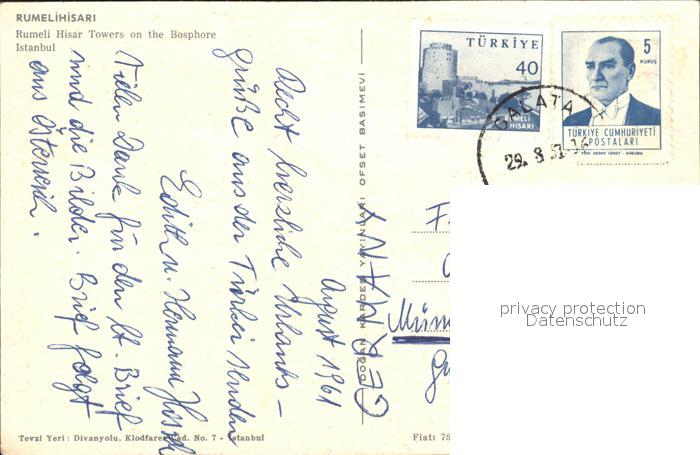 RUMELİHİSARI
Rumeli Hisar Towers on the Bosphore
Istanbul
TÜRKİYE
40
RUMELİ
HİSARI
5
KURUŞ
TÜRKİYE CUMHURİYETİ
POSTALARI
GALATA
29. 8
August 1961
Recht herzliche Urlaubs-
grüße aus der Türkei senden
Edith u. Hermann
Vielen Dank für den lb. Brief
und die Bilder. Brief folgt
aus Österreich.
DOĞAN KARDEŞ YAYINLARI OFSET BASIMEVİ
GERMANY
F
Mün
privacy protection
Datenschutz
Tevzi Yeri : Divanyolu, Klodfarer Cad. No. 7 - İstanbul
Fiatı 75